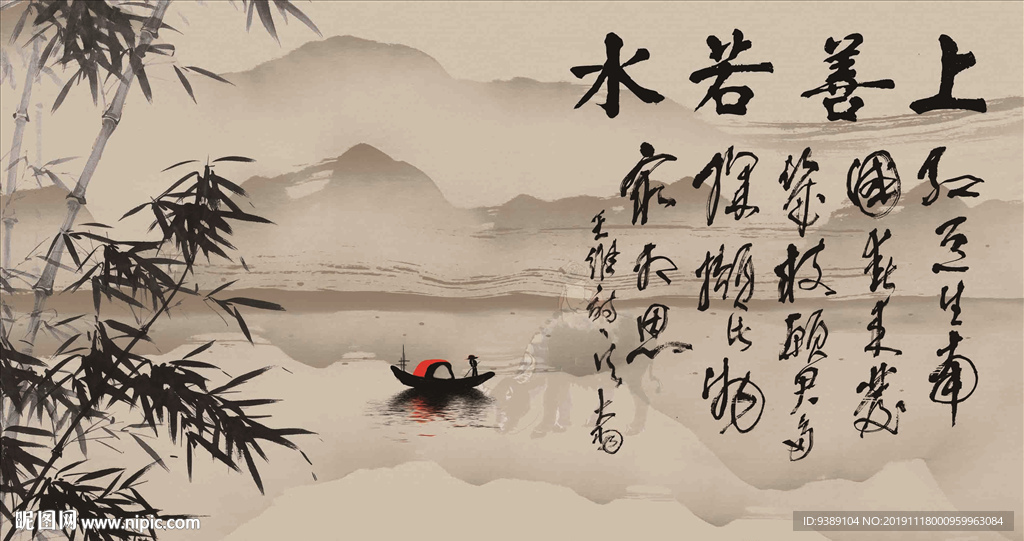 上善若水
紅豆生南
國春来發
幾枝願君多
採擷此物
最相思
王維詩
昵图网 www.nipic.com
ID:9389104 NO:20191118000959963084